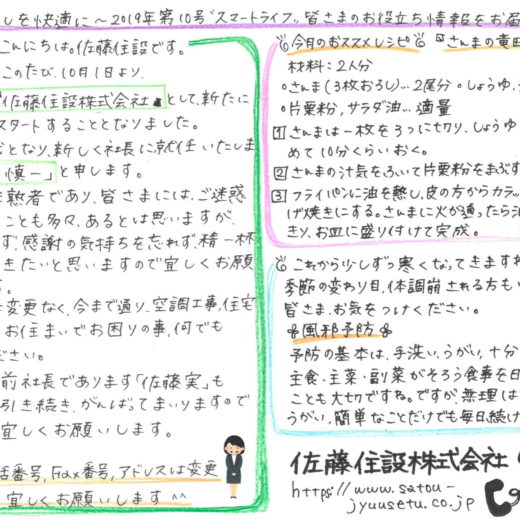 しを快適に～2019年第10号"スマートライフ"、皆さまのお役立ち情報をお届
こんにちは。佐藤住設です。
このたび、10月1日より、
「佐藤住設株式会社」として、新たに
スタートすることとなりました。
となり、新しく社長に就任いたしま
慎一」と申します。
熟者であり、皆さまには、ご迷惑
ことも多々、あるとは思いますが、
ず、感謝の気持ちを忘れず、精一杯
きたいと思いますので宜しくお願
変更なく、今まで通り、空調工事、住宅
お住まいでお困りの事、何でも
ださい。
前社長であります「佐藤実」も
引き続き、がんばってまいりますので
宜しくお願いします。
話番号、Fax番号、アドレスは変更
宜しくお願いします^^
今月のおススメレシピ "さんまの竜田
材料:2人分
○さんま(3枚おろし)…2尾分 ○しょうゆ、
○片栗粉、サラダ油…適量
1 さんまは一枚を3つに切り、しょうゆ
めて10分くらいおく。
2 さんまの汁気をふいて片栗粉をまぶす
3 フライパンに油を熱し、皮の方からカラッ
げ焼きにする。さんまに火が通ったら油
きり、お皿に盛り付けて完成。
これから少しずつ寒くなってきますね
季節の変わり目、体調崩される方もい
皆さま、お気をつけください。
風邪予防
予防の基本は、手洗い、うがい、十分
主食・主菜・副菜がそろう食事を日
ことも大切ですね。ですが、無理は
うがい、簡単なことだけでも毎日続け
佐藤住設株式会社
https://www.satou-
jyuusetu.co.jp